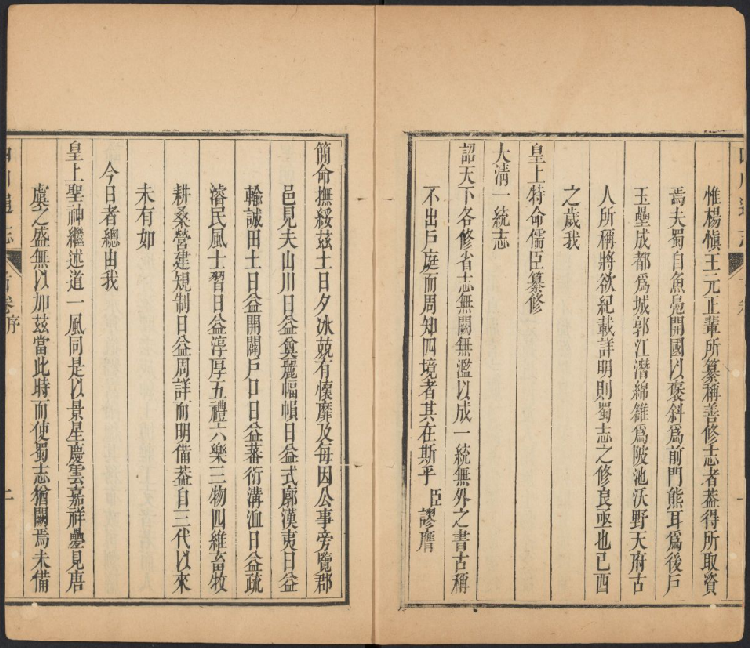 惟楊愼王元正輩所纂稱善修志者葢得所取資
焉夫蜀自魚鳧開國以褒斜爲前門熊耳爲後戸
玉壘成都爲城郭江潛綿雒爲陂池沃野天府古
人所稱將欲紀載詳明則蜀志之修良亟也已酉
之歲我
皇上特命儒臣纂修
大清一統志
詔天下各修省志無闕無濫以成一統無外之書古稱
不出戸庭而周知四境者其在斯乎臣謬膺
簡命撫綏兹土日夕氷兢有懐靡及毎因公事旁覽郡
邑見夫山川日益奠麗幅𢄙日益式廓漢夷日益
輸誠田土日益開闢戸口日益蕃衍溝洫日益疏
濬民風士習日益淳厚五禮六樂三物四維畜牧
耕桑營建規制日益周詳而明備葢自三代以來
未有如
今日者總由我
皇上聖神繼述道一風同是以景星慶雲嘉祥疊見唐
虞之盛無以加兹當此時而使蜀志猶闕焉未備
四川通志
首卷序
二